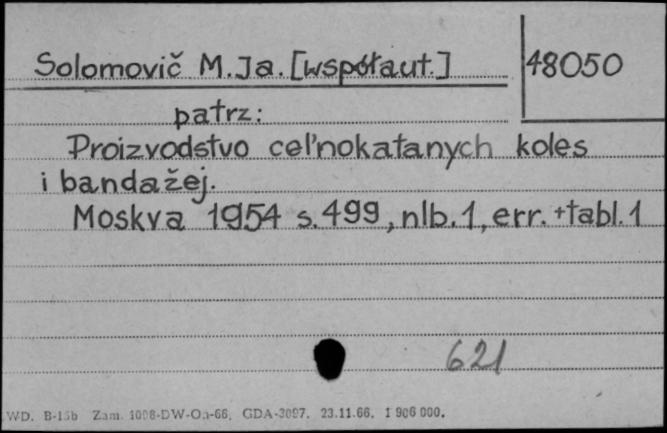 Solomovič M.Ja. [współaut.] 48050
patrz:
Proizvodstvo cel'nokatanych koles
i bandažej.
Moskva 1954 s.499, nlb.1, err.+tabl.1
621
WD. B-15b Zam. 1098-DW-Oa-66, GDA-3097. 23.11.66. 1 906 000.